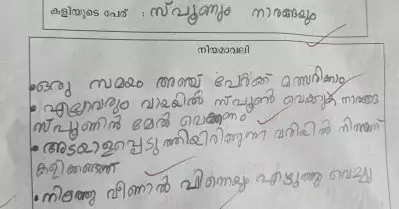 കളിയുടെ പേര് : സ്പൂണും നാരങ്ങയും
നിയമാവലി
•ഒരു സമയം അഞ്ച് പേർക്ക് മത്സരിക്കാം
•എല്ലാവരും വായയിൽ സ്പൂൺ വെക്കുക നാരങ്ങ
സ്പൂണിൻ മേൽ വെക്കണം
•അടയാളപ്പെടുത്തിയിരിക്കുന്ന വരിയിൽ നിന്നാണ്
കളിക്കേണ്ടത്
•നിലത്തു വീണാൽ പിന്നെയും എടുത്തു വെച്ചു